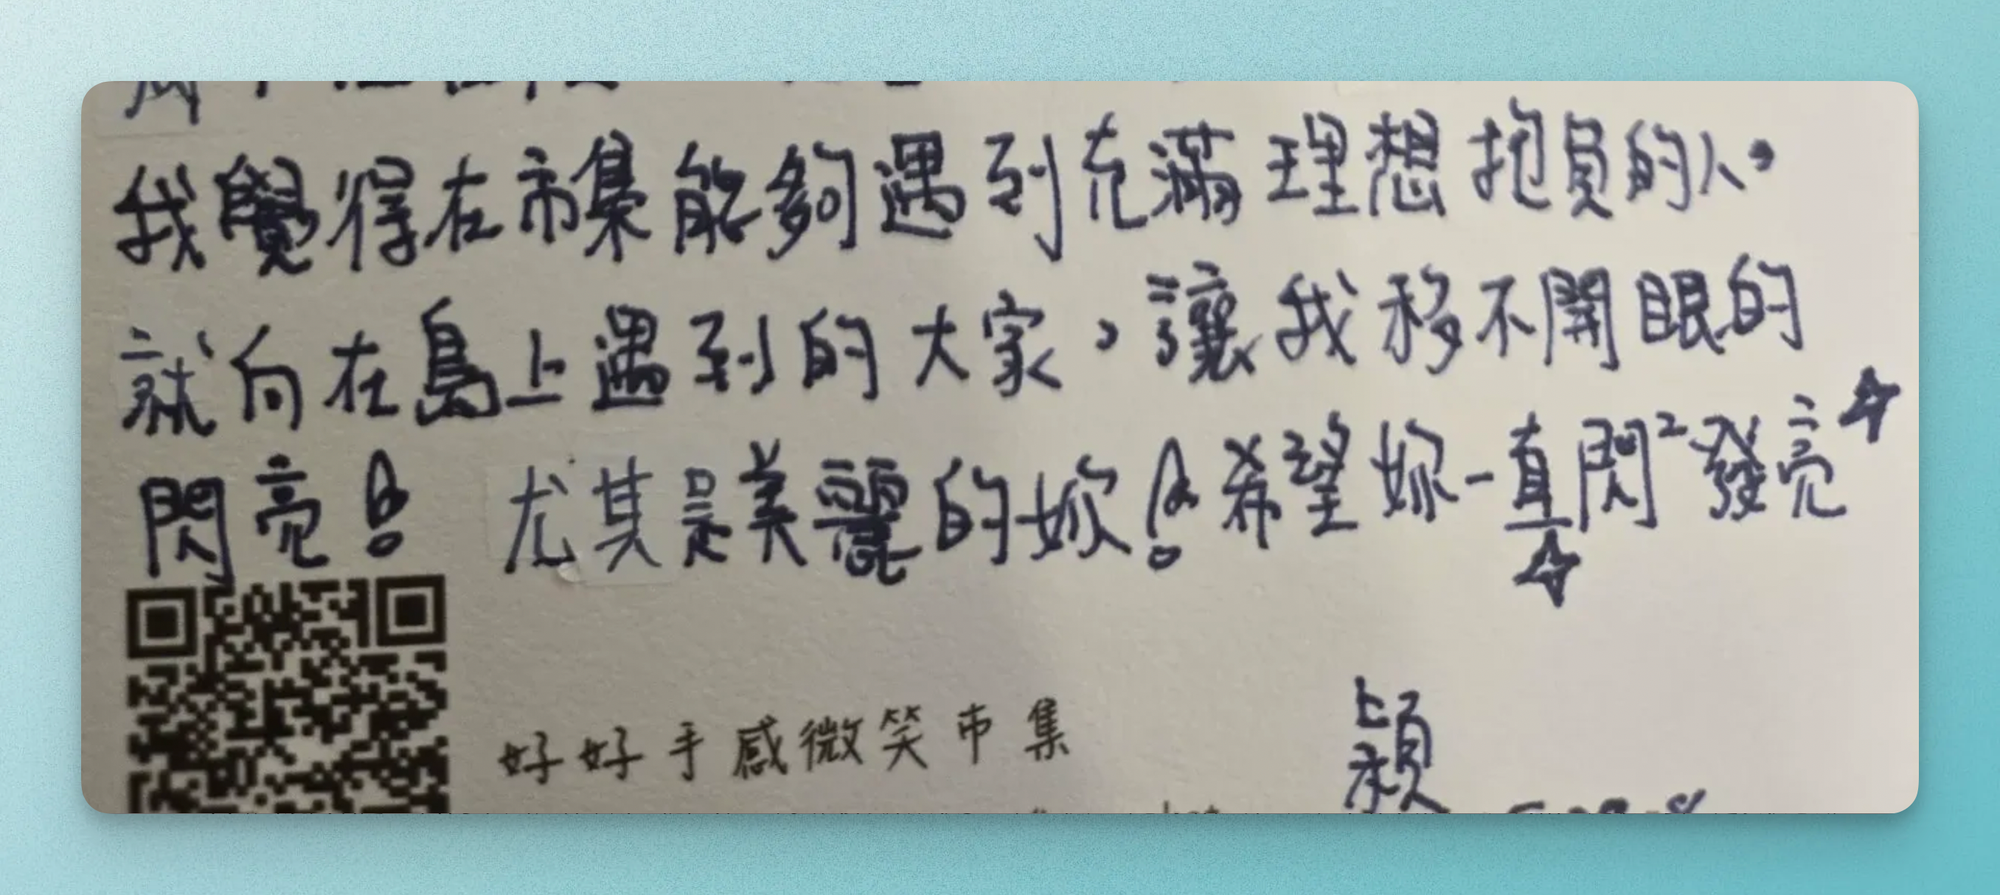 我覺得在市集能夠遇到充滿理想抱負的人。
就向在島上遇到的大家，讓我移不開眼的
閃亮！尤其是美麗的妳！希望妳一直閃²發亮☆
☆
好好手感微笑市集
穎